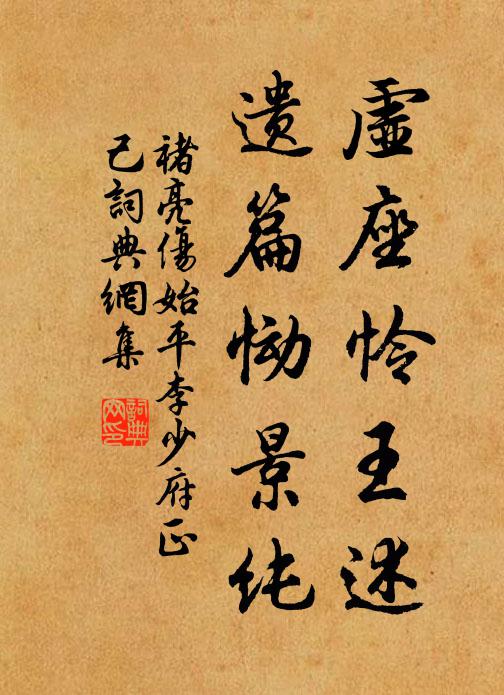 虚座怜王述
遗篇恸景纯
褚亮傷始平李少府正
己詞典網集
詞典
网印